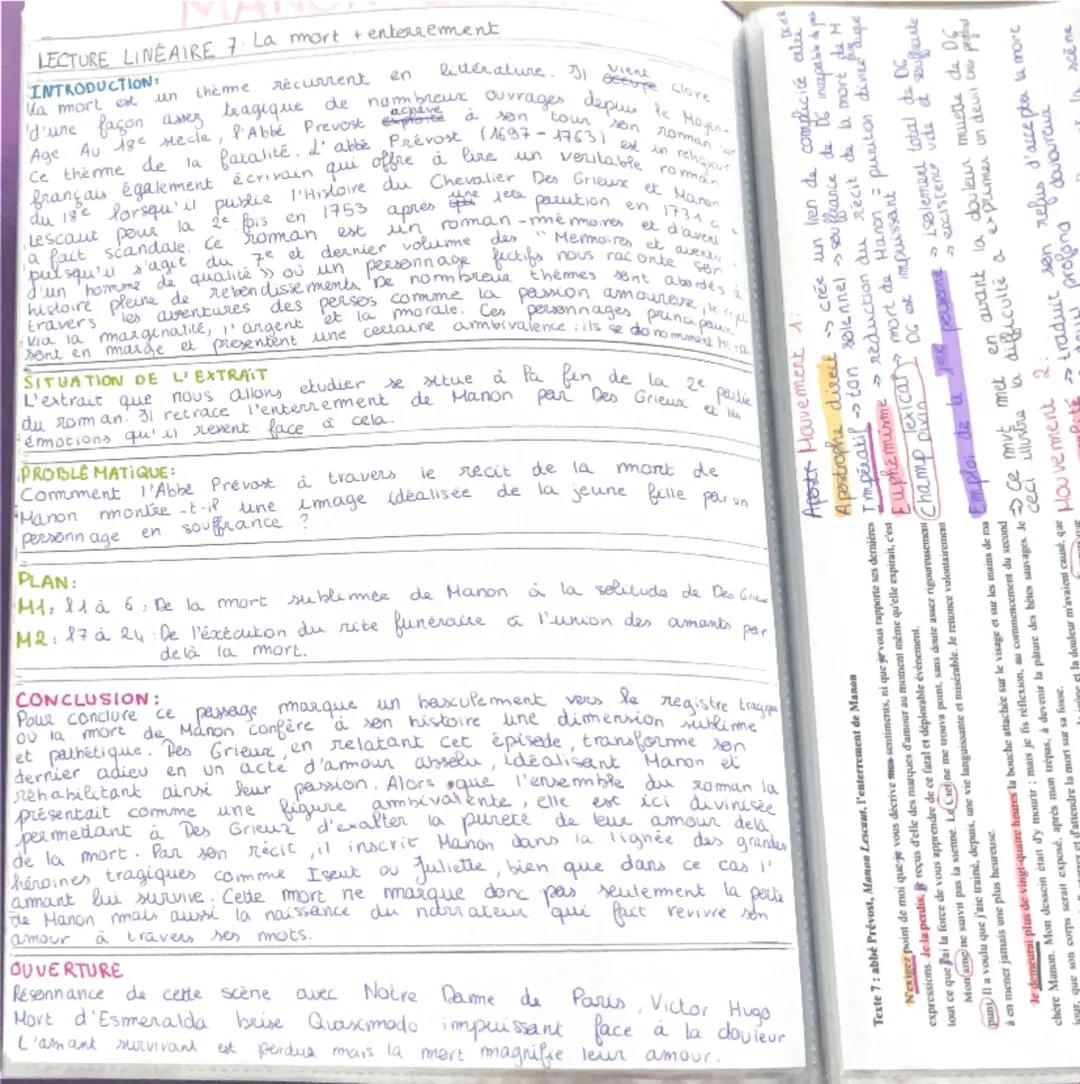 MANON
LECTURE LINÉAIRE 7: La mort + enterrement
INTRODUCTION:
La mort est un thème récurrent en littérature. Il vient clore
d'une façon assez tragique de nombreux ouvrages depuis le Moyen-
Age. Au 18e siècle, l'Abbé Prevost achève à son tour son roman sur
ce thème de la fatalité. L'abbé Prévost (1697-1763) est un religieux
français également écrivain qui offre à lire un veritable roman
du 18e lorsqu'il publie l'Histoire du Chevalier Des Grieux et Manon
Lescaut pour la 2e fois en 1753 après une 1ere parution en 1731 q
a fait scandale. Ce roman est un roman-mémoires et d'avent
puisqu'il s'agit du 7e et dernier volume des "Memoires et aventu
d'un homme de qualité" où un personnage fictifs nous raconte son
histoire pleine de rebondissements. De nombreux thèmes sont abordés à
travers les aventures des persos comme la passion amoureuse, le
via la marginalité, l'argent et la morale. Ces personnages principaux
sont en marge et présentent une certaine ambivalence: ils se donomment
SITUATION DE L'EXTRAIT
L'extrait que nous allons etudier se situe à la fin de la 2e partie
du roman. Il retrace l'enterrement de Manon par Des Grieux et les
émotions qu'il resent face à cela.
PROBLÉMATIQUE:
Comment l'Abbé Prévost à travers le récit de la mort de
Manon montre-t-il une image idéalisée de la jeune fille par un
personnage en souffrance ?
PLAN:
M1: l1 à 6: De la mort sublimée de Manon à la solitude de Des Grieux
M2: l7 à 24: De l'éxécution du rite funéraire à l'union des amants par
delà la mort.
CONCLUSION:
Pour conclure ce passage marque un basculement vers le registre tragique
où la mort de Manon confère à son histoire une dimension sublime
et pathétique. Des Grieux, en relatant cet épisode, transforme son
dernier adieu en un acte d'amour absolu, idéalisant Manon et
réhabilitant ainsi leur passion. Alors que l'ensemble du roman la
présentait comme une figure ambivalente, elle est ici divinisée
permettant à Des Grieux d'exalter la pureté de leur amour delà
de la mort. Par son récit, il inscrit Manon dans la lignée des grandes
héroines tragiques comme Iseut ou Juliette, bien que dans ce cas l'
amant lui survive. Cette mort ne marque donc pas seulement la perte
de Manon mais aussi la naissance du narrateur qui fait revivre son
amour à travers ses mots.
OUVERTURE
Résonnance de cette scène avec Notre Dame de Paris, Victor Hugo
Mort d'Esmeralda brise Quasimodo impuissant face à la douleur
L'amant survivant est perdus mais la mort magnifie leur amour.
Texte 7 : abbé Prévost, Manon Lescaut, l'enterrement de Manon
N'exigez point de moi que je vous décrive mes sentiments, ni que je vous rapporte ses dernières
expressions. Je la perdis; je reçus d'elle des marques d'amour au moment même qu'elle expirait, c'est
tout ce que j'ai la force de vous apprendre de ce fatal et déplorable événement.
Mon âme ne suivit pas la sienne. Le Ciel ne me trouva point, sans doute assez rigoureusement
puni. Il a voulu que j'aie traîné, depuis, une vie languissante et misérable. Je renonce volontairement
à en mener jamais une plus heureuse.
Je demeurai plus de vingt-quatre heures la bouche attachée sur le visage et sur les mains de ma
chère Manon. Mon dessein était d'y mourir ; mais je fis réflexion, au commencement du second
jour, que son corps serait exposé, après mon trépas, à devenir la pâture des bêtes sauvages. Je
et d'attendre la mort sur sa fosse.
et la douleur m'avaient causé, que
Mouvement 1:
Apostrophe direct => crée un lien de complicité entre
Impératif => ton solennel => souffrance de DG incapable de
Euphémisme => réduction du récit de la mort de M
Champ lexical divin => mort de Manon = punition divine
DG est impuissant
Emploi de la 1ere personne => isolement total de DG
=> existence vide et
=> Ce mvt met en avant la douleur muette de DG
ceci illustre la difficulté à exprimer un deuil
Mouvement 2:
=> traduit son refus d'accepter la mort
profond
scène